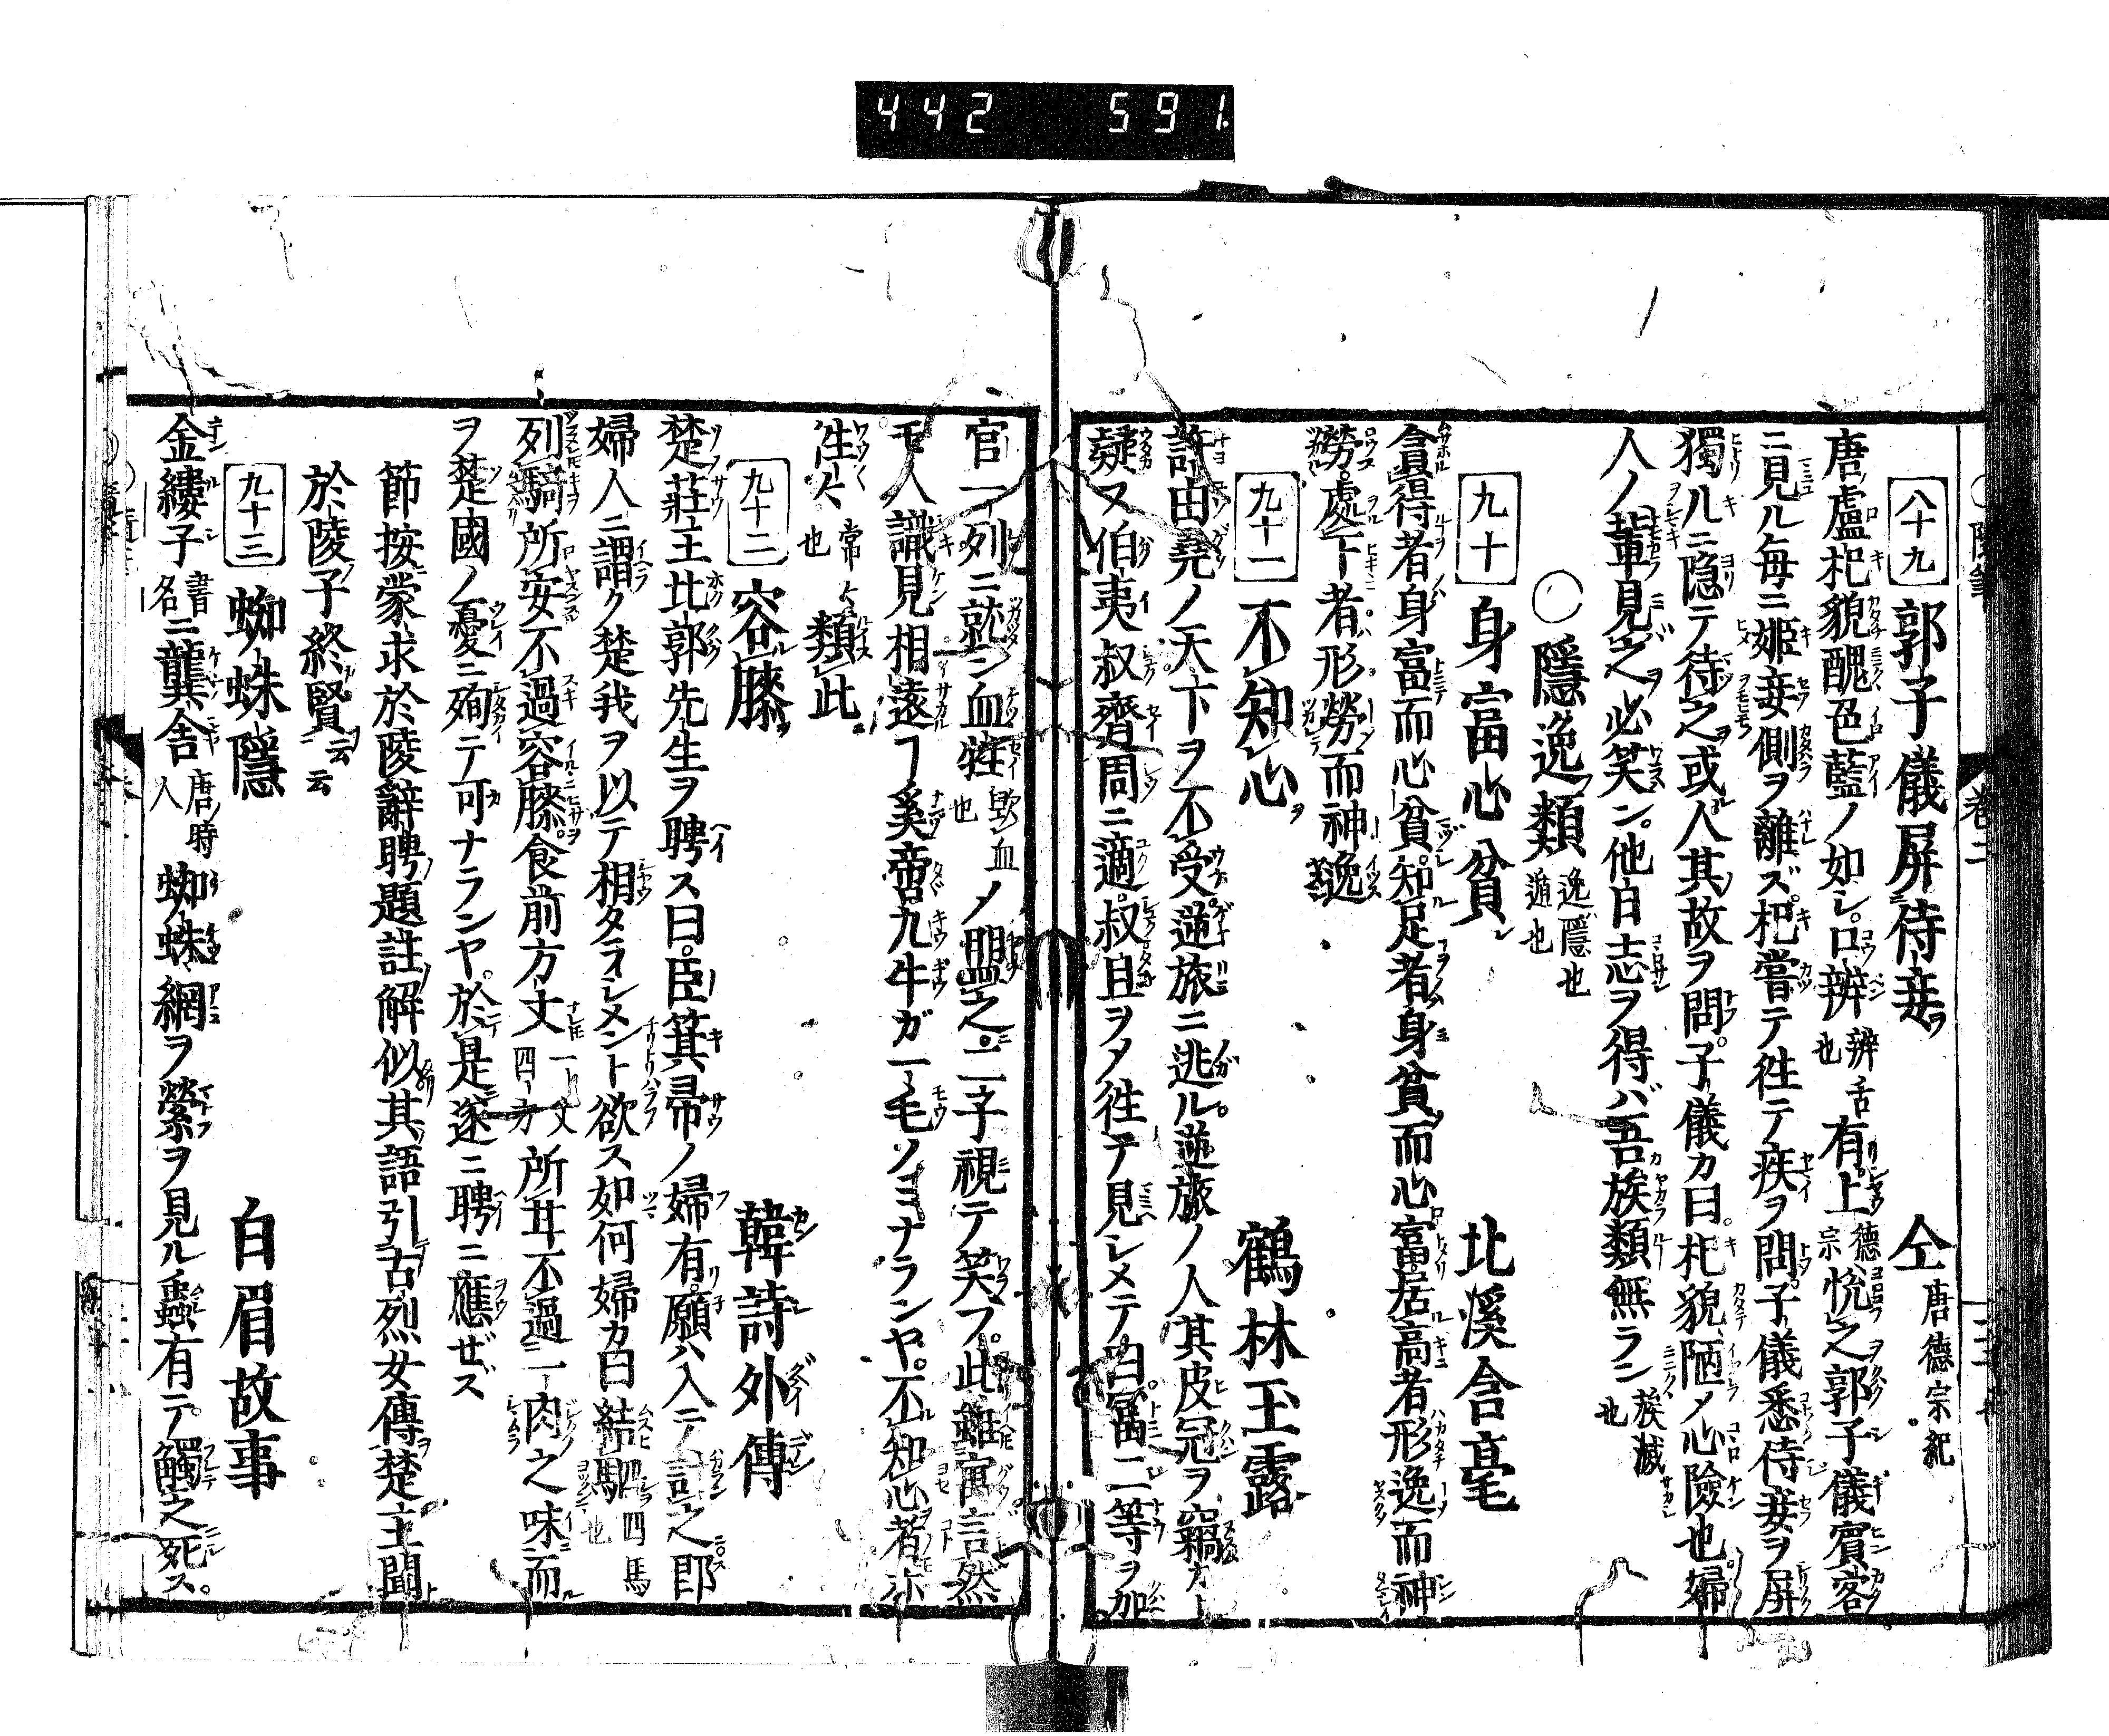 442 591
八十九 郭子儀屏侍妾 仝 唐德宗紀
唐盧杞貌醜色藍ノ如シ口辨 辨舌也 有上 德宗 悅之郭子儀賓客
ニ見ル每ニ姬妾側ヲ離ズ杞嘗テ徃テ疾ヲ問子儀悉侍妾ヲ屏
獨几ニ隐テ待之或人其故ヲ問子儀カ曰杞貌陋メ心險也婦
人ノ輩見之必笑ン他日志ヲ得バ吾族類無ラン 族滅也
〇隱逸類 逸隱也遁也
九十 身富心貧 北溪含毫
貪得者身富而心貧知足者身貧而心富居高者形逸而神
勞處下者形勞而神逸
九十一 不知心 鶴林玉露
許由堯ノ天下ヲ不受逆旅ニ逃ル逆旅ノ人其皮冠ヲ竊カト
疑ヌ伯夷叔齊周ニ適叔旦ヲメ徃テ見シメテ曰富二等ヲ加
官一列ニ就シ血牲 歃血也 ノ盟之二子視テ笑フ此雖寓言然
モ人識見相遠ヿ奚啻九牛ガ一毛ノミナランヤ不知心者亦
徃〻 常也 類此
九十二 容膝 韓詩外傳
楚莊王北郭先生ヲ聘ス曰臣箕帚ノ婦有願ハ入テ計之卽
婦人ニ謂ク楚我ヲ以テ相タラシメント欲ス如何婦カ曰結駟 四馬也
列騎所安不過容膝食前方丈 一丈四方 所甘不過一肉之味而
ヲ楚國ノ憂ニ殉テ可ナランヤ於是遂ニ聘ニ應ゼズ
節按蒙求於陵辭聘題註解似其語引古烈女傳楚王聞
於陵子終賢云云
九十三 蜘蛛隱 白眉故事
金縷子 書名 ニ龔舍 唐ノ時人 蜘蛛網ヲ縈ヲ見ル蟲有テ觸之死ス